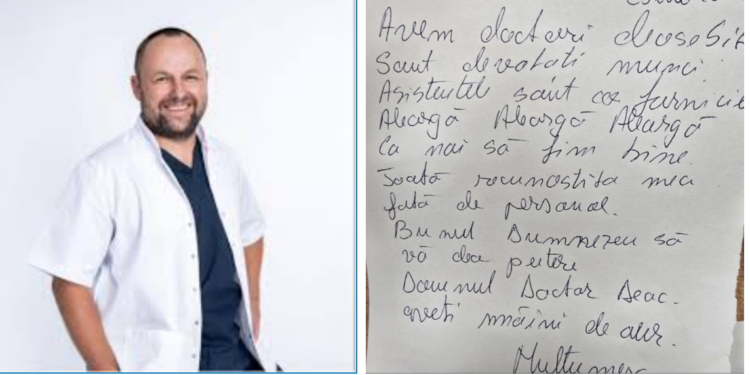 Avem doctori deoseb
Sânt devotati munci
Asistentele sânt ca furnicile
Aleargă Aleargă Aleargă
Ca noi să fim bine.
Toată recunostita mea
fată de personal.
Bunul Dumnezeu să
vă dea putere
Domnul Doctor Deac.
aveti mâini de aur.
Multumesc